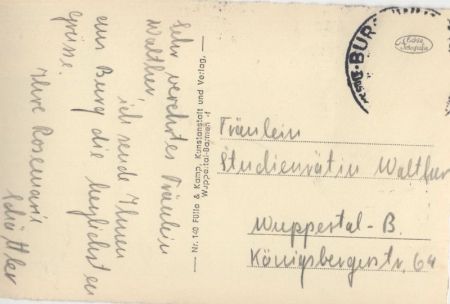 Sehr verehrtes Fräulein
Walther,
ich sende Ihnen
aus Burg die herzlichsten
Grüsse.
Ihre Rosemarie
Nr. 140 Fülle & Kamp, Kunstanstalt und Verlag,
Wuppertal-Barmen
BUR
Echte
Fräulein
Studienrätin
Wuppertal-B.
Königsbergerstr. 64